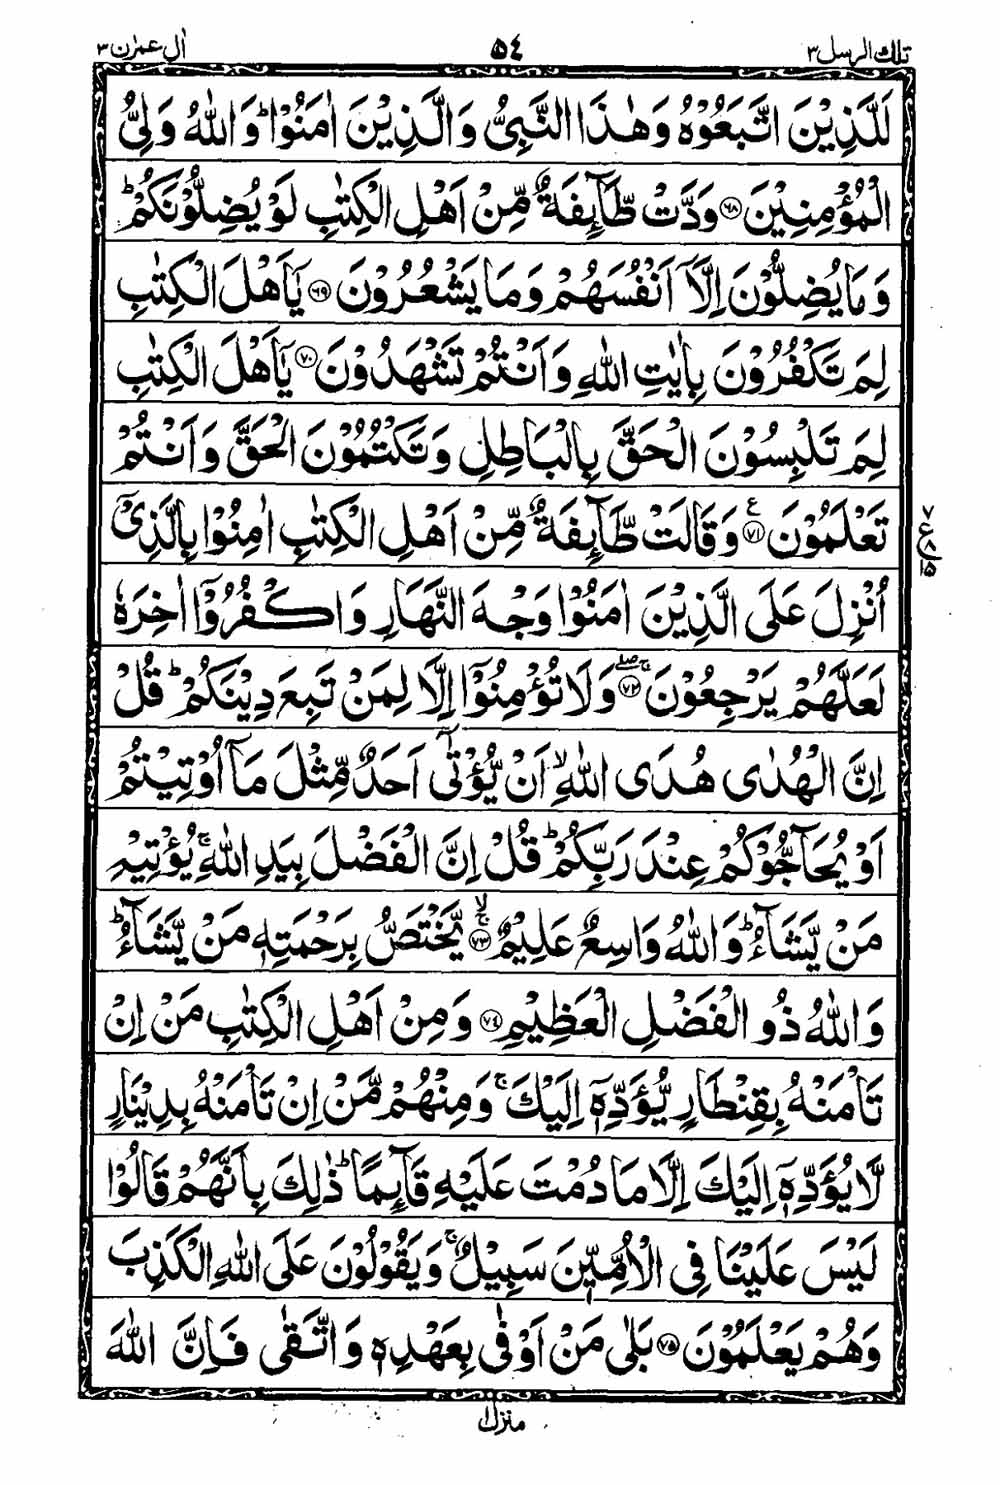 تلك الرسل ٣ ٥٤ اٰل عمرٰن ٣
لَلَّذِيْنَ اتَّبَعُوْهُ وَهٰذَا النَّبِىُّ وَالَّذِيْنَ اٰمَنُوْا ؕ وَاللّٰهُ وَلِىُّ
الْمُؤْمِنِيْنَ ﴿٦٨﴾ وَدَّتْ طَّآئِفَةٌ مِّنْ اَهْلِ الْكِتٰبِ لَوْ يُضِلُّوْنَكُمْ ؕ
وَمَا يُضِلُّوْنَ اِلَّاۤ اَنْفُسَهُمْ وَمَا يَشْعُرُوْنَ ﴿٦٩﴾ يٰۤاَهْلَ الْكِتٰبِ
لِمَ تَكْفُرُوْنَ بِاٰيٰتِ اللّٰهِ وَاَنْتُمْ تَشْهَدُوْنَ ﴿٧٠﴾ يٰۤاَهْلَ الْكِتٰبِ
لِمَ تَلْبِسُوْنَ الْحَقَّ بِالْبَاطِلِ وَتَكْتُمُوْنَ الْحَقَّ وَاَنْتُمْ
تَعْلَمُوْنَ ﴿٧١﴾ ع وَقَالَتْ طَّآئِفَةٌ مِّنْ اَهْلِ الْكِتٰبِ اٰمِنُوْا بِالَّذِىْۤ
٧ ع ٨ ١٥
اُنْزِلَ عَلَى الَّذِيْنَ اٰمَنُوْا وَجْهَ النَّهَارِ وَاكْفُرُوْۤا اٰخِرَهٗ
لَعَلَّهُمْ يَرْجِعُوْنَ ﴿٧٢﴾ ۚۖ وَلَا تُؤْمِنُوْۤا اِلَّا لِمَنْ تَبِعَ دِيْنَكُمْ ؕ قُلْ
اِنَّ الْهُدٰى هُدَى اللّٰهِ ۙ اَنْ يُّؤْتٰٓى اَحَدٌ مِّثْلَ مَاۤ اُوْتِيْتُمْ
اَوْ يُحَآجُّوْكُمْ عِنْدَ رَبِّكُمْ ؕ قُلْ اِنَّ الْفَضْلَ بِيَدِ اللّٰهِ ۚ يُؤْتِيْهِ
مَنْ يَّشَآءُ ؕ وَاللّٰهُ وَاسِعٌ عَلِيْمٌ ﴿٧٣﴾ ۚۙ يَّخْتَصُّ بِرَحْمَتِهٖ مَنْ يَّشَآءُ ؕ
وَاللّٰهُ ذُو الْفَضْلِ الْعَظِيْمِ ﴿٧٤﴾ وَمِنْ اَهْلِ الْكِتٰبِ مَنْ اِنْ
تَاْمَنْهُ بِقِنْطَارٍ يُّؤَدِّهٖۤ اِلَيْكَ ۚ وَمِنْهُمْ مَّنْ اِنْ تَاْمَنْهُ بِدِيْنَارٍ
لَّا يُؤَدِّهٖۤ اِلَيْكَ اِلَّا مَا دُمْتَ عَلَيْهِ قَآئِمًا ؕ ذٰلِكَ بِاَنَّهُمْ قَالُوْا
لَيْسَ عَلَيْنَا فِى الْاُمِّيّٖنَ سَبِيْلٌ ۚ وَيَقُوْلُوْنَ عَلَى اللّٰهِ الْكَذِبَ
وَهُمْ يَعْلَمُوْنَ ﴿٧٥﴾ بَلٰى مَنْ اَوْفٰى بِعَهْدِهٖ وَاتَّقٰى فَاِنَّ اللّٰهَ
منزل ١